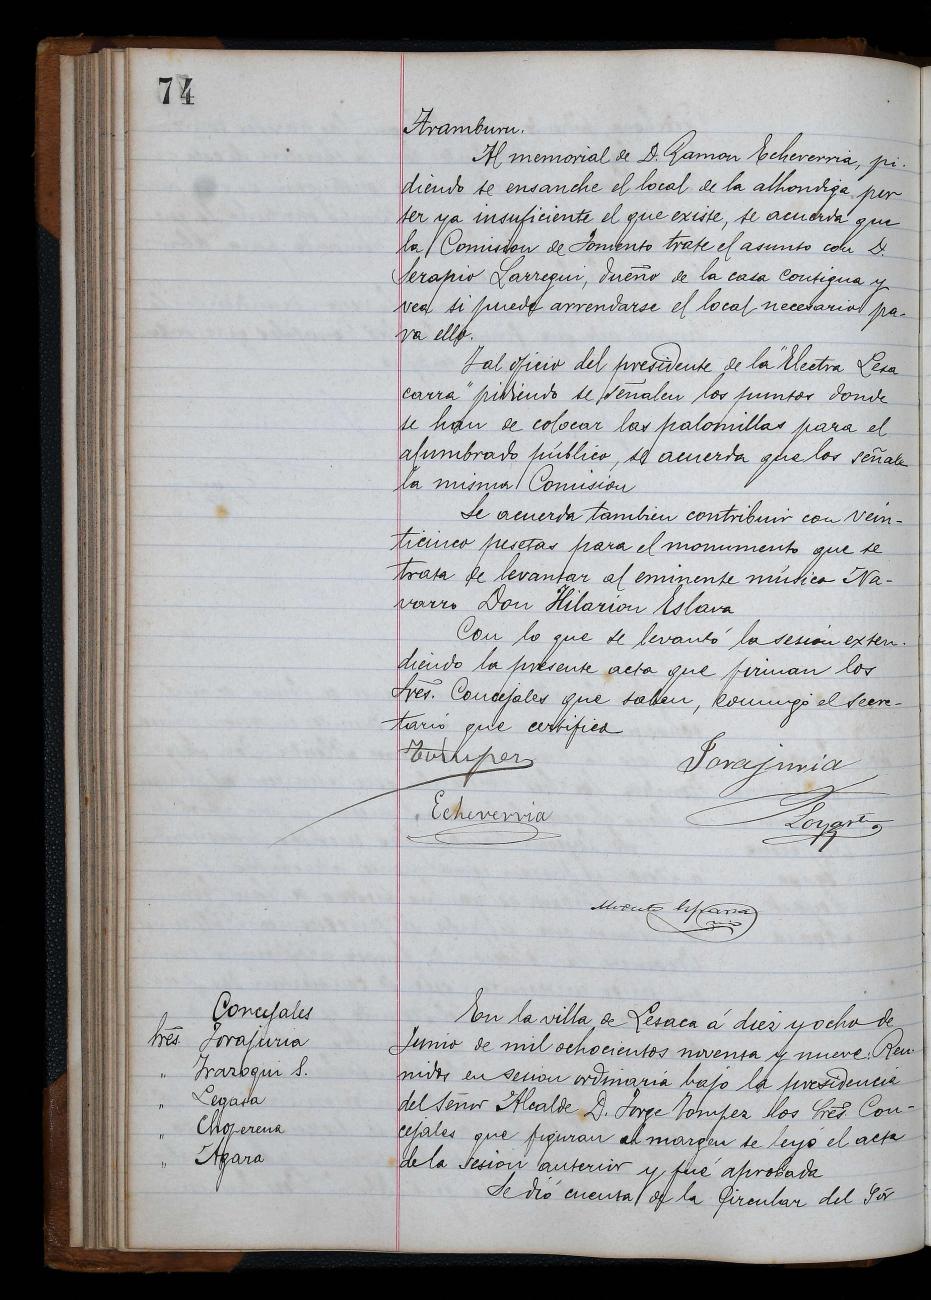 74
Aramburu.
Al memorial de D. Ramon Echeverria, pi-
diendo se ensanche el local de la alhondiga por
ser ya insuficiente el que existe, se acuerda que
la Comision de Fomento trate el asunto con D.
Serapio Larregui, dueño de la casa contigua y
vea si puede arrendarse el local necesario pa-
ra ello.
Y al oficio del presidente de la "Electra Lesa
carra" pidiendo se señalen los puntos donde
se han de colocar las palomillas para el
alumbrado público, se acuerda que los señale
la misma Comision
Se acuerda tambien contribuir con vein-
ticinco pesetas para el monumento que se
trata de levantar al eminente músico Na-
varro Don Hilarion Eslava
Con lo que se levantó la sesion exten-
diendo la presente acta que firman los
Sres. Concejales que saben, conmigo el secre-
tario que certifica
Tompes Jorajuria
Echeverria
Concejales
Sres. Jorajuria
" Irazoqui S.
" Legasa
" Choperena
" Agara
En la villa de Lesaca á diez y ocho de
Junio de mil ochocientos noventa y nueve: Reu-
nidos en sesion ordinaria bajo la presidencia
del Señor Alcalde D. Jorge Tompes los Sres. Con-
cejales que figuran al margen se leyó el acta
de la sesion anterior y fué aprobada
Se dió cuenta de la Circular del Sör